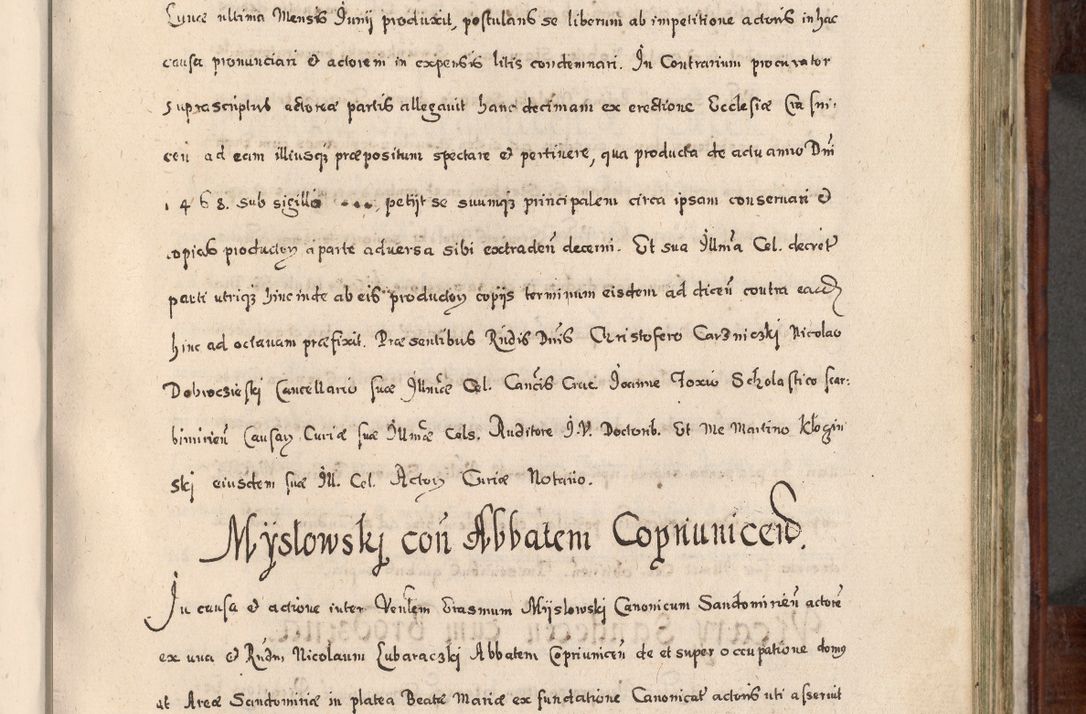 Lunæ ultima Mensis Junij produxit, postulans se liberum ab impetitione actoris in hac
causa pronunciari et actorem in expensis litis condemnari. In Contrarium procurator
suprascriptus actoreæ partis allegavit hanc decimam ex erectione Ecclesiæ Crasni-
ceñ ad eam illiusqz præpositum spectare et pertinere, qua producta de actu anno Dñi
1468. sub sigillo petijt se suumqz principalem circa ipsam conservari et
copias productoꝝ a parte adversa sibi extradeñ decerni. Et sua Illma Cel. decret
parti utriqz hinc inde ab eis productoꝝ copijs terminum eisdem ad diceñ contra eadem
hinc ad octavam præfixit. Præsentibus Rndis Dnis Christofero Carzniczki Nicolao
Dobrocieski Cancellario suæ Illmæ Cel. Cancis Crac. Joanne Foxio Scholastico Scar-
bimirień Causaꝝ Curiæ suæ Illmæ Cels. Auditore J.V. Doctorib. Et Me Martino Kłogin
skj eiusdem suæ Ill. Cel. Actoꝝ Curiæ Notario.
Mÿslowskj coñ Abbatem Copriuniceñ.
In causa et actione inter Venlem Erasmum Mÿslowskj Canonicum Sandomirieñ actore
ex una et Rndm Nicolaum Lubaraczkj Abbatem Copriuniceñ de et super occupatione domꝯ
at Areæ Sandomiriæ in platea Beatæ Mariæ ex fundatione Canonicat actoris uti asseruit